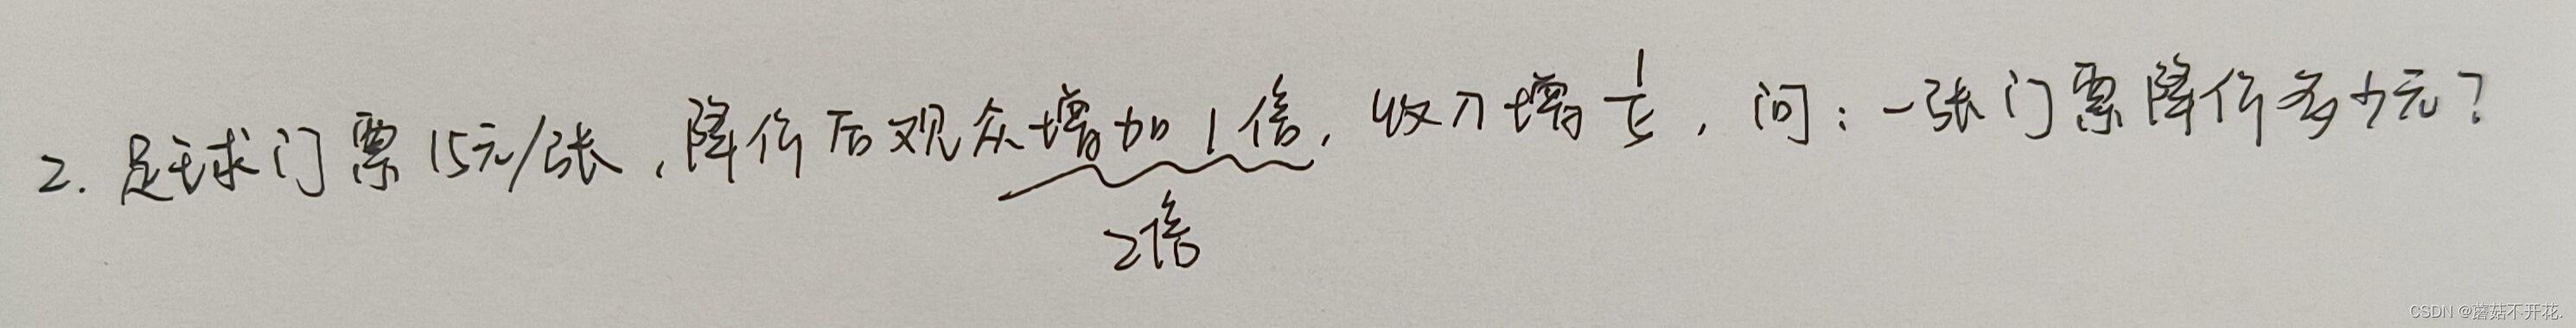 2. 足球门票15元/张,降价后观众增加1倍,收入增1/5,问:一张门票降价多少元?
2倍
CSDN @蘑菇不开花.